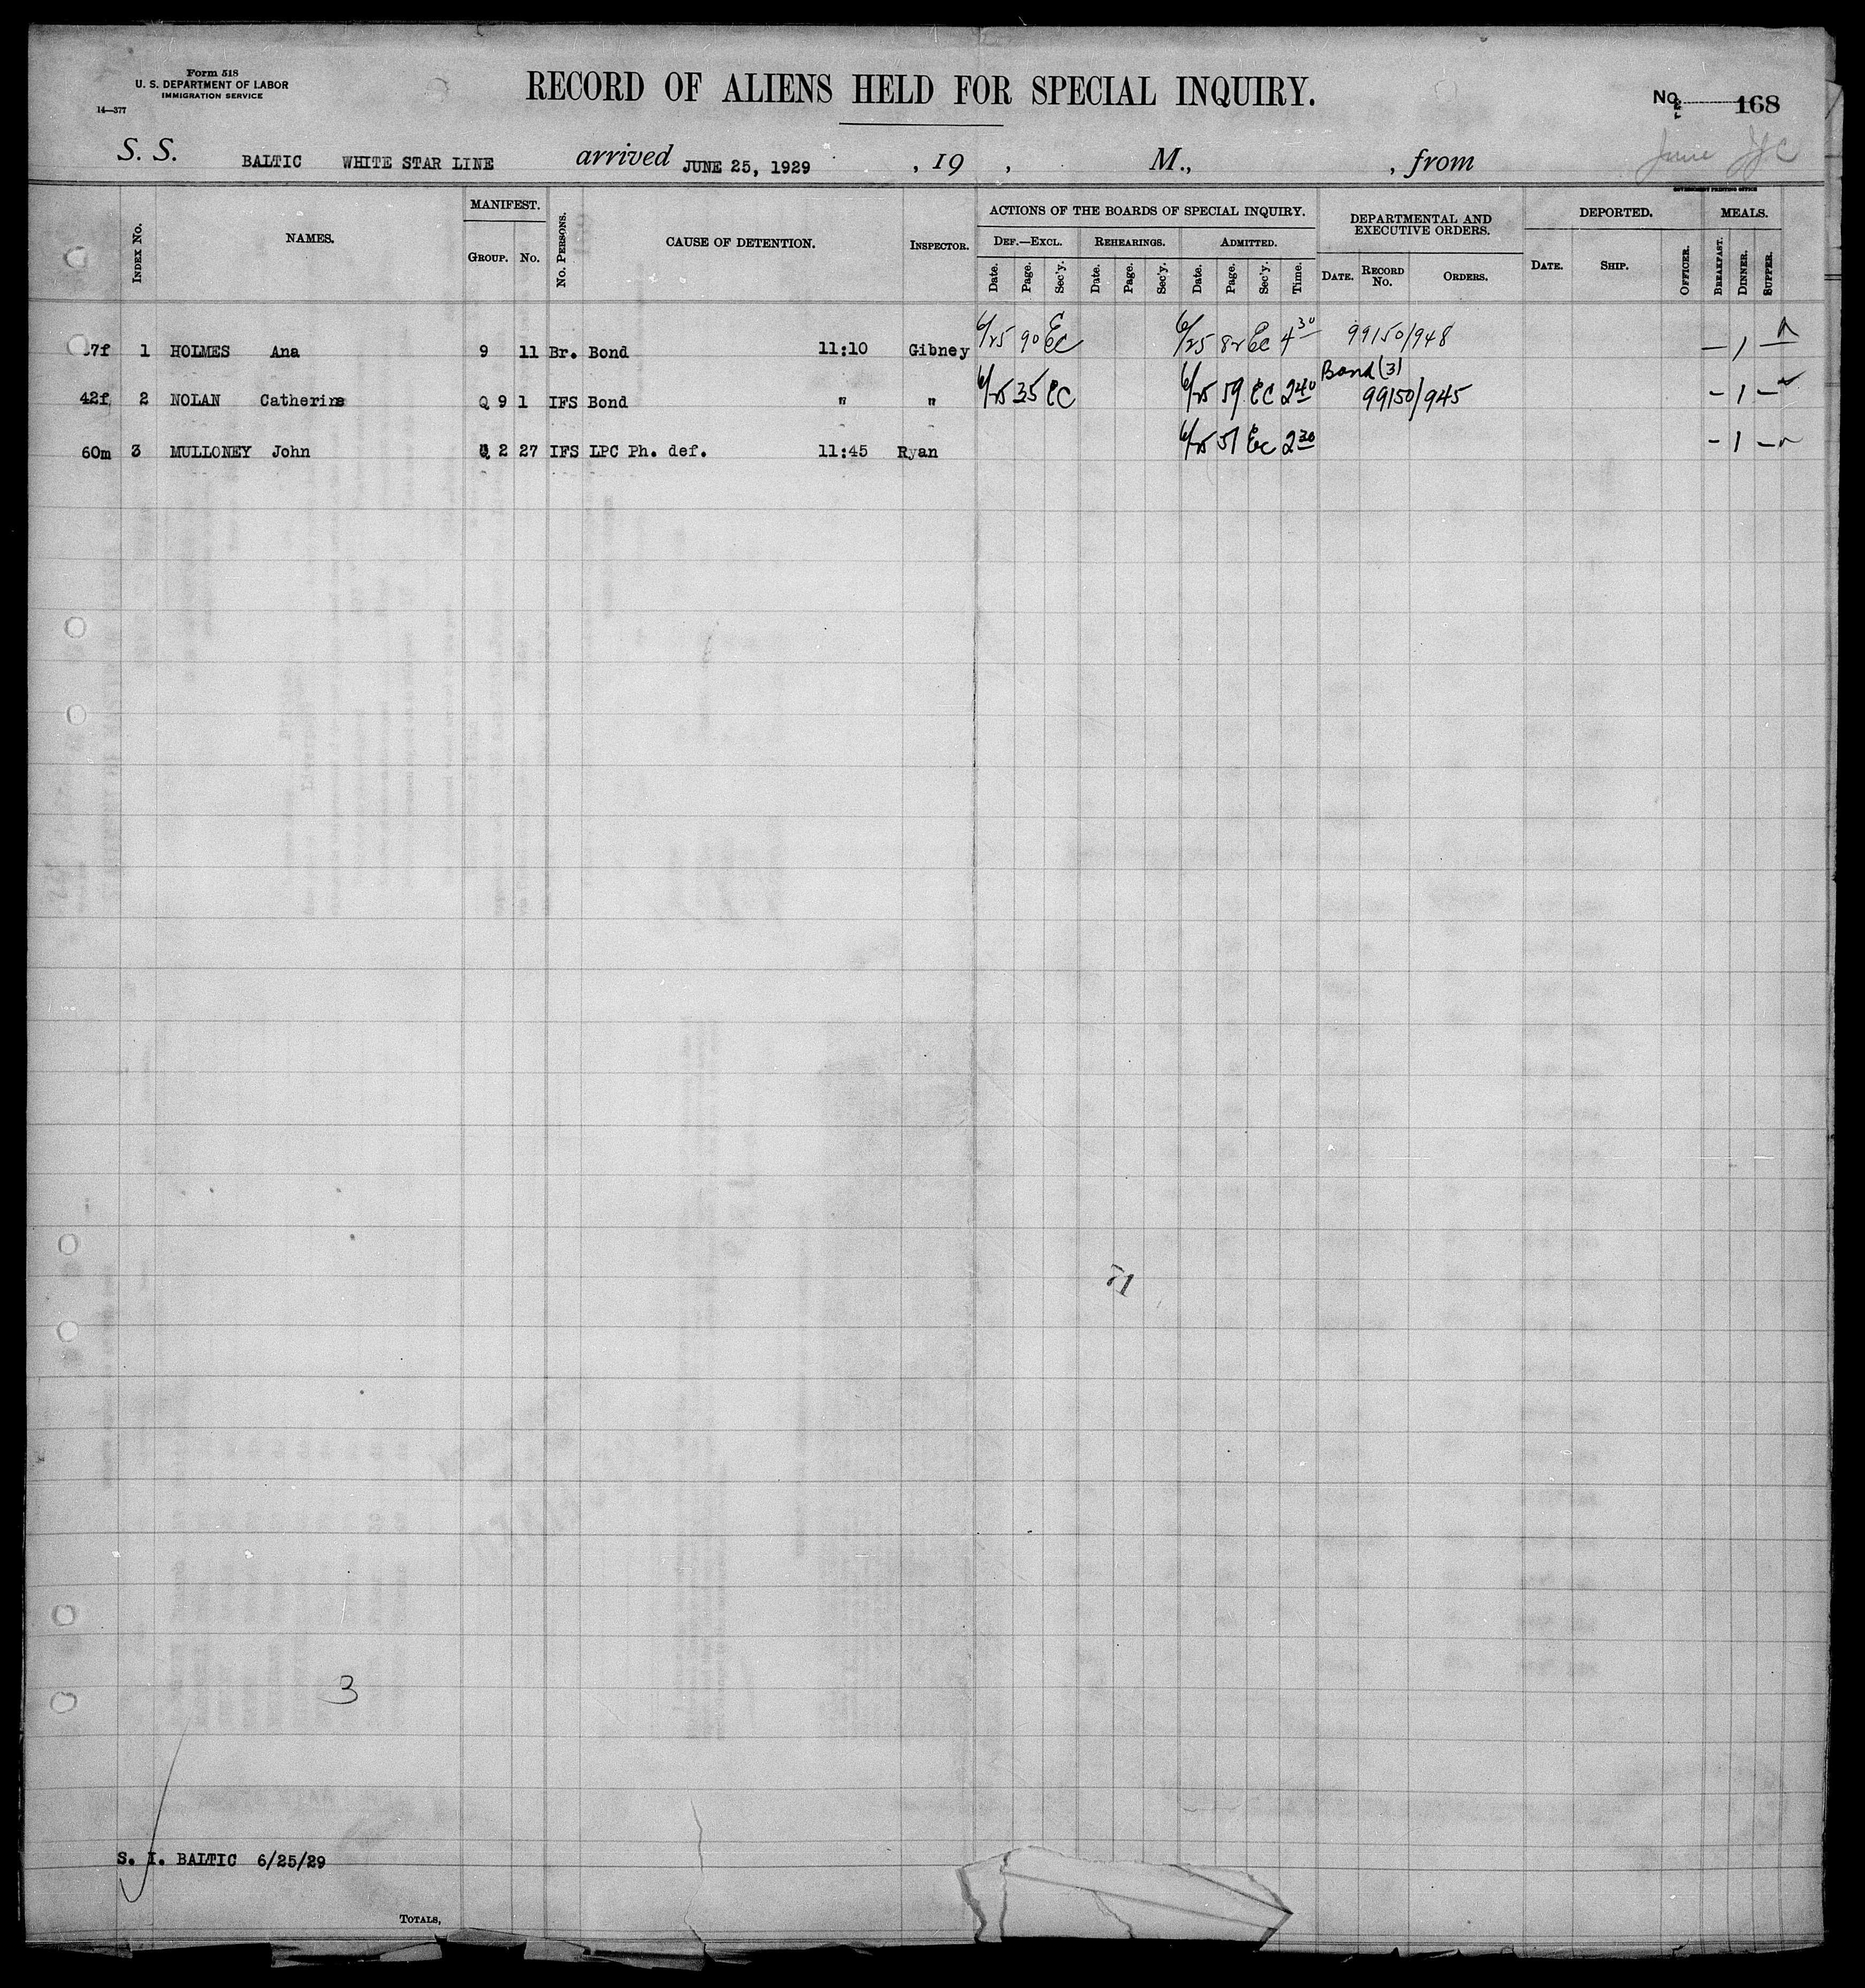 Form 518
U. S. DEPARTMENT OF LABOR
IMMIGRATION SERVICE
14—377
RECORD OF ALIENS HELD FOR SPECIAL INQUIRY.
No. 168
S. S. BALTIC WHITE STAR LINE arrived JUNE 25, 1929 , 19 , M., , from
June
GOVERNMENT PRINTING OFFICE
INDEX NO. NAMES. MANIFEST. GROUP. NO. NO. PERSONS. CAUSE OF DETENTION. INSPECTOR. ACTIONS OF THE BOARDS OF SPECIAL INQUIRY. DEPARTMENTAL AND EXECUTIVE ORDERS. DEPORTED. MEALS.
DEF.—EXCL. REHEARINGS. ADMITTED.
Date. Page. Sec'y. Date. Page. Sec'y. Date. Page. Sec'y. Time. DATE. RECORD NO. ORDERS. DATE. SHIP. OFFICER. BREAKFAST. DINNER. SUPPER.
7f 1 HOLMES Ana 9 11 Br. Bond 11:10 Gibney 6/25 90 EC 6/25 82 EC 4 30 99150/948 — 1 —
Bond (3)
42f 2 NOLAN Catherine Q 9 1 IFS Bond " " 6/25 35 EC 6/25 59 EC 2 40 99150/945 — 1 —
60m 3 MULLONEY John Q 2 27 IFS LPC Ph. def. 11:45 Ryan 6/25 51 EC 2 30 — 1 —
71
3
S. I. BALTIC 6/25/29
TOTALS,